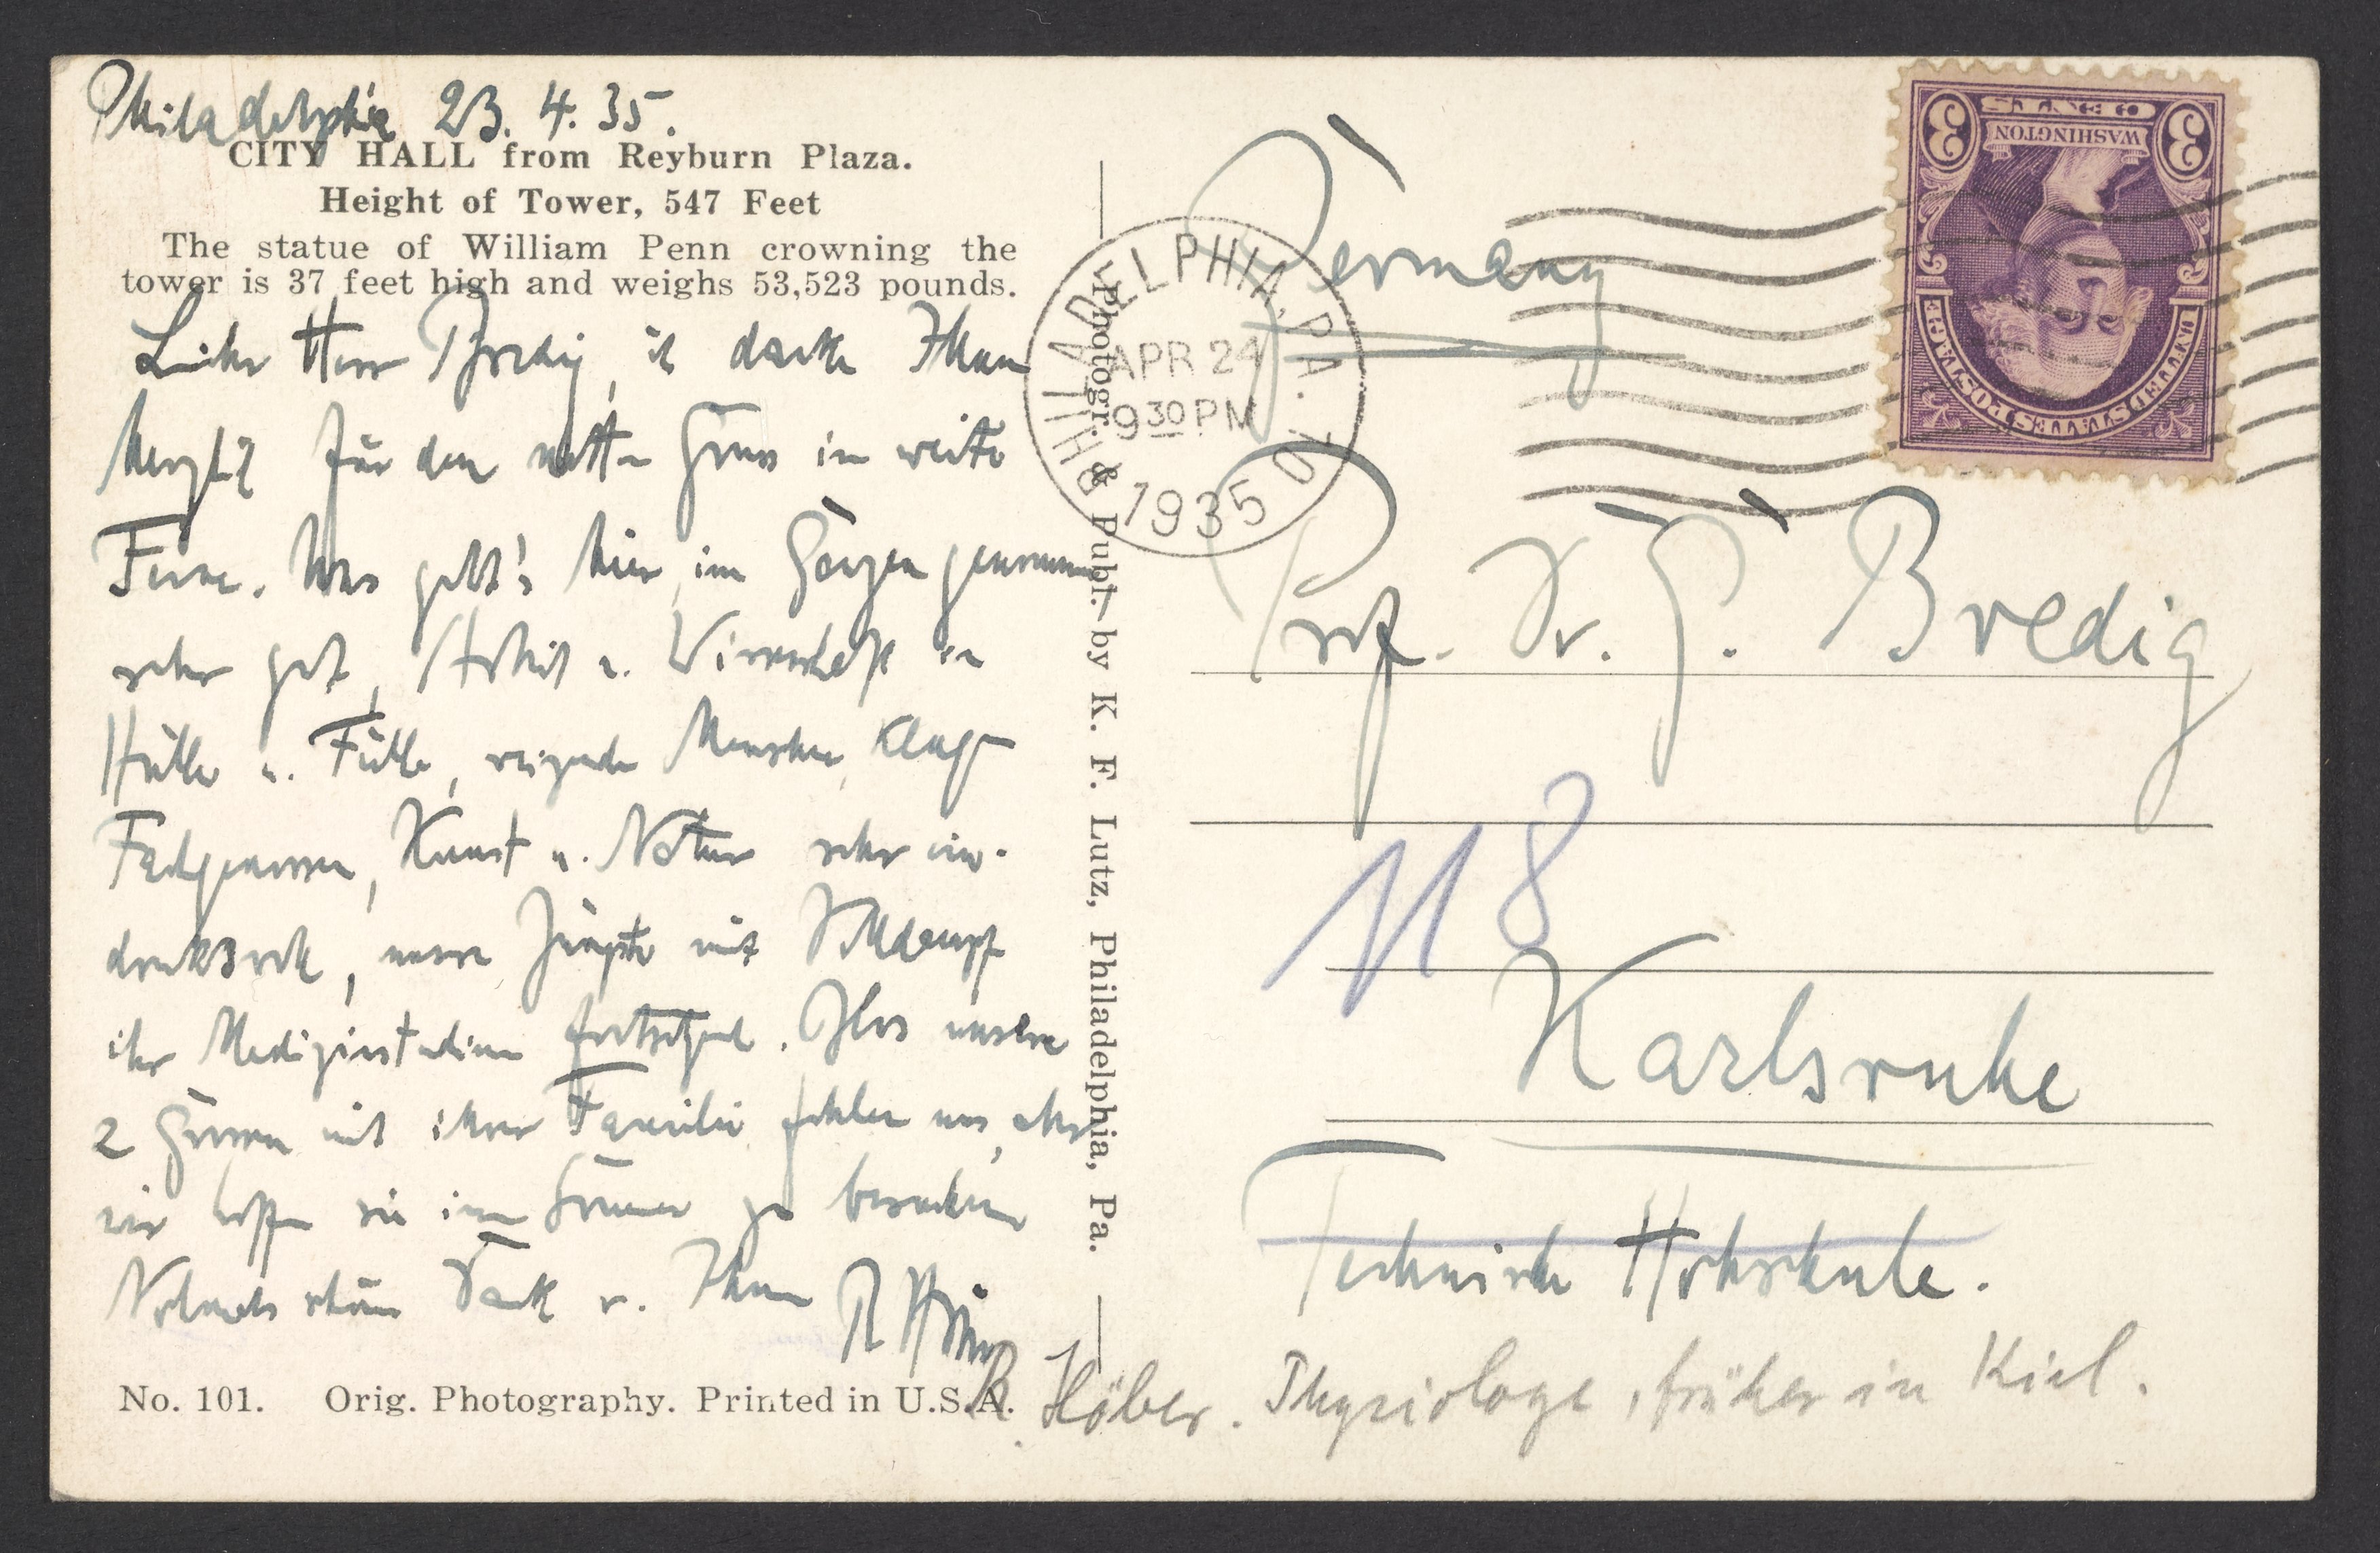 Philadelphia 23. 4. 35.
CITY HALL from Reyburn Plaza.
Height of Tower, 547 Feet
The statue of William Penn crowning the
tower is 37 feet high and weighs 53,523 pounds.
Lieber Herr Bredig, ich danke Ihnen
herzlich für den netten Gruss in weite
Ferne. Uns geht's hier im Ganzen genommen
sehr gut, Arbeit u. Wissenschaft in
Hülle u. Fülle, reizende Menschen, kluge
Fachgenossen, Kunst u. Natur sehr ein-
drucksvoll, unsre Jüngste mit Volldampf
ihr Medizinstudium fortsetzend. Blos unsere
2 Grossen mit ihrer Familie fehlen uns, aber
wir hoffen sie im Sommer zu besuchen
Nochmals schönen Dank v. Ihrem R Höber
No. 101. Orig. Photography. Printed in U.S.A.
Photogr. & Publ. by K. F. Lutz, Philadelphia, Pa.
PHILADELPHIA, PA.
APR 24
9 30 PM
1935
Germany
UNITED STATES POSTAGE
WASHINGTON
3 CENTS 3
Prof. Dr. G. Bredig
118
Karlsruhe
Technische Hochschule.
R. Höber. Physiologe, früher in Kiel.